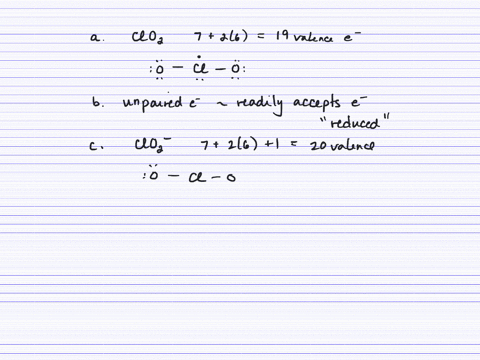 a. ClO₂ 7 + 2(6) = 19 valence e⁻
:Ö̤ — Ċ̤l — Ö̤:
b. unpaired e⁻ ~ readily accepts e⁻
"reduced"
c. ClO₂⁻ 7 + 2(6) + 1 = 20 valence
:Ö — Cl — O